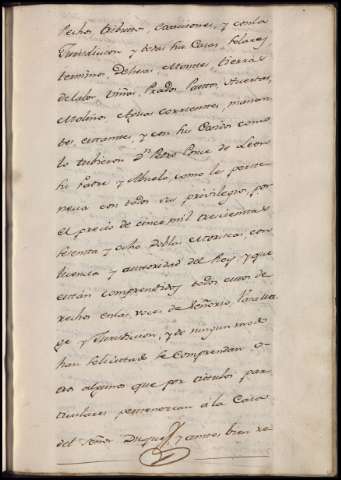 Pechos tributos, Canciones, y con la
Jurisdiccion y todas sus Casas, Solares
terminos, Dehesas Montes, tierras
de labor Viñas, Prados Pastos, Huertas,
Molinos, Aguas corrientes, manan
tes, estantes, y con sus Caidos como
lo tubieron Dn. Pedro Ponce de Leon
su Padre y Abuelo, como le pertte
necia con todos sus privilegios, por
el precio de cinco mil trescientas
setenta y ocho doblas Moriscas, con
licencia y autoridad del Rey y que
están comprendidos todos estos de
rechos en las voces de Señorio, Vasalla
ge y Jurisdiccion, y de ningun modo
han solicitado se Comprendan o
tros algunos que por titulos par
ticulares pertenezcan á la Casa
del Señor Duque y antes bien re